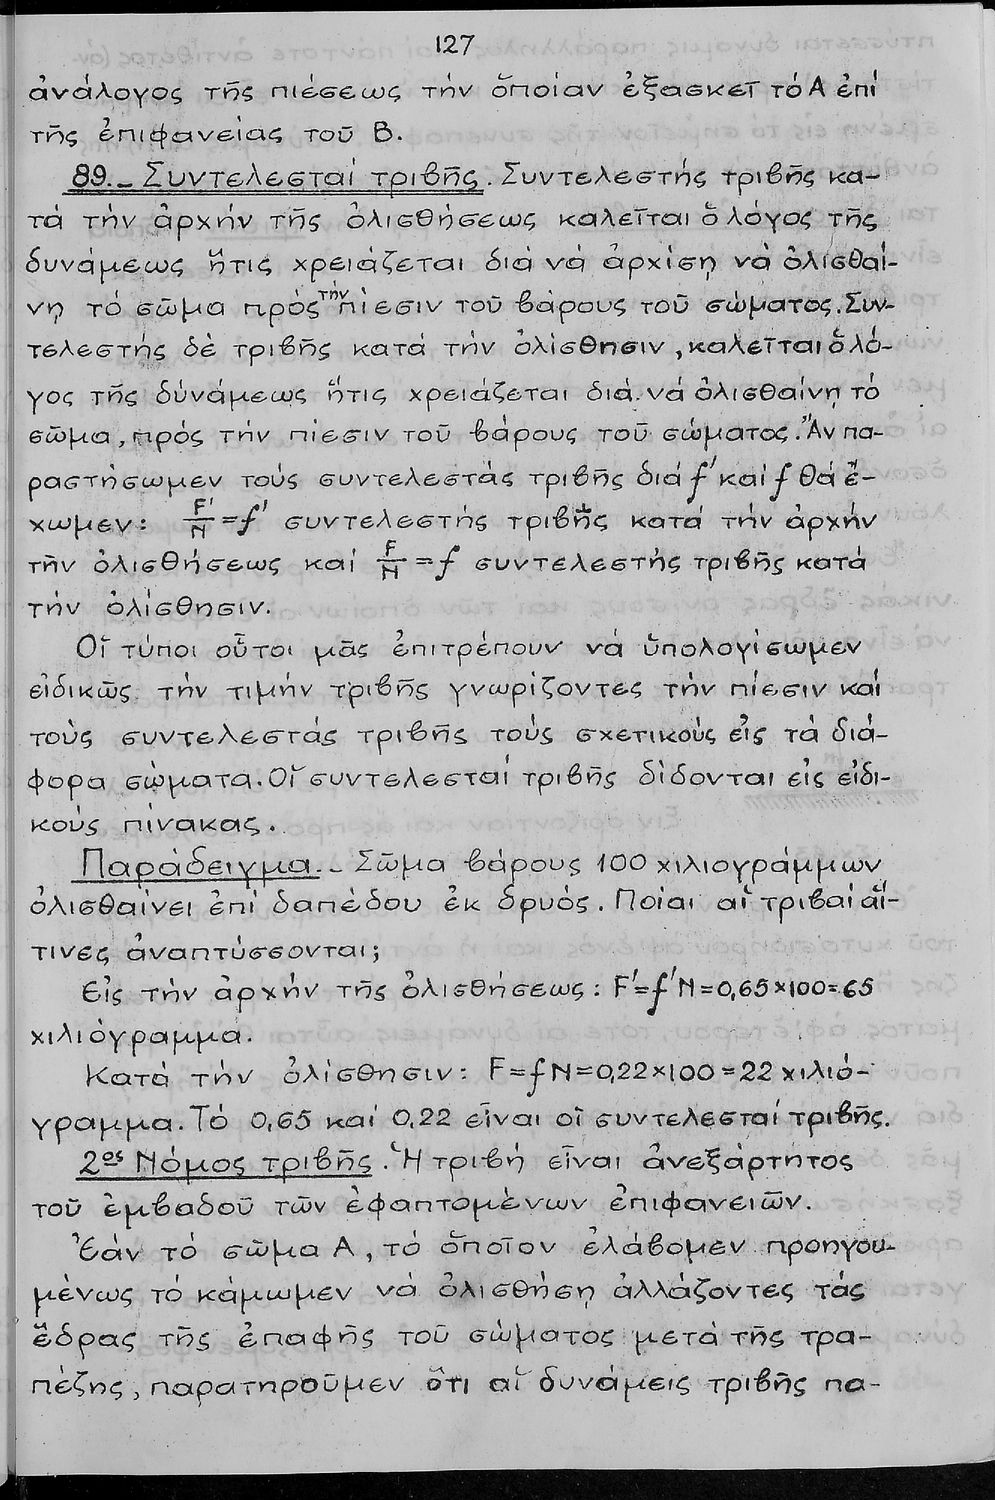 127
ἀνάλογος τῆς πιέσεως τήν ὅποίαν ἐξασκεῖ τό Α ἐπί
τῆς ἐπιφανείας τοῦ Β.
89.- Συντελεσταί τριβῆς. Συντελεστής τριβῆς κα-
τά τήν ἀρχήν τῆς ὀλισθήσεως καλεῖται ὅ λόγος τῆς
δυνάμεως ἥτις χρειάζεται διά νά ἀρχίσῃ νὰ ὀλισθαί-
νῃ τό σῶμα πρός τήν πίεσιν τοῦ βάρους τοῦ σώματος. Συν-
τελεστής δὲ τριβῆς κατά τήν ὀλίσθησιν, καλεῖται ὅ λό-
γος τῆς δύνάμεως ἥτις χρειάζεται διά νά ὀλισθαίνῃ τό
σῶμα, πρός τήν πίεσιν τοῦ βάρους τοῦ σώματος. Ἄν πα-
ραστήσωμεν τούς συντελεστάς τριβῆς διά f' καί f θά ἔ-
χωμεν: F'/N = f' συντελεστής τριβῆς κατά τήν ἀρχήν
τὴν ὀλισθήσεως καί F/N = f συντελεστής τριβῆς κατά
τήν ὀλίσθησιν.
Οἵ τύποι οὗτοι μᾶς ἐπιτρέπουν νά ὕπολογίσωμεν
εἰδικῶς τήν τιμήν τριβῆς γνωρίζοντες τήν πίεσιν καί
τοὺς συντελεστάς τριβῆς τούς σχετικοὺς εἰς τὰ διά-
φορα σώματα. Οἵ συντελεσταί τριβῆς δίδονται εἰς εἰδι-
κούς πίνακας.
Παράδειγμα.- Σῶμα βάρους 100 χιλιογράμμων
ὀλισθαίνει ἐπί δαπέδου ἐκ δρυός. Ποίαι αἵ τριβαί αἵ-
τινες ἀναπτύσσονται;
Εἰς τήν ἀρχήν τῆς ὀλισθήσεως: F'=f'N=0,65×100=65
χιλιόγραμμα.
Κατά τήν ὀλίσθησιν: F=fN=0,22×100=22 χιλιό-
γραμμα. Τό 0,65 καί 0,22 εἶναι οἵ συντελεσταί τριβῆς.
2ος Νόμος τριβῆς. Ἡ τριβή εἶναι ἀνεξάρτητος
τοῦ ἐμβαδοῦ τῶν ἐφαπτομένων ἐπιφανειῶν.
Ἐάν τό σῶμα Α, τό ὅποῖον ἐλάβομεν προηγου-
μένως τό κάμωμεν νά ὀλισθήσῃ ἀλλάζοντες τάς
ἕδρας τῆς ἐπαφῆς τοῦ σώματος μετά τῆς τρα-
πέζης, παρατηροῦμεν ὅτι αἵ δυνάμεις τριβῆς πα-